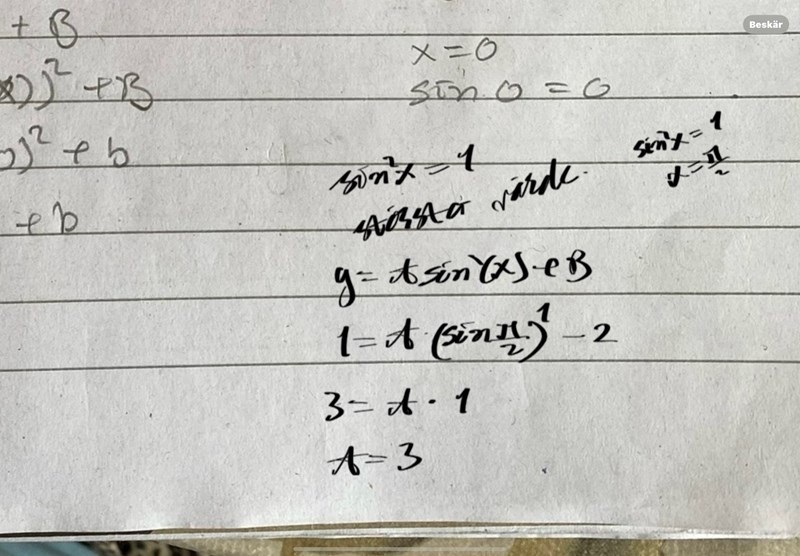 Beskär
+ B
x))² + B
)² + b
+ b
x = 0
sin 0 = 0
sin²x = 1
största värde.
sin²x = 1
x = π/2
y = A sin²(x) + B
1 = A · (sin π/2)² - 2
3 = A · 1
A = 3